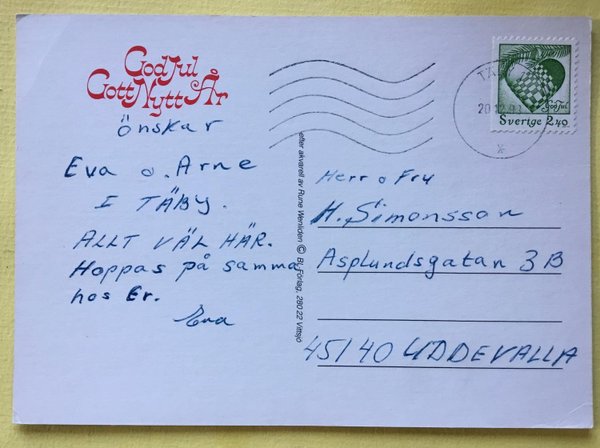 God Jul
Gott Nytt År
önskar
Eva o. Arne
I TÄBY.
ALLT VÄL HÄR.
Hoppas på samma
hos Er.
Eva
efter akvarell av Rune Wenliden © BI-Förlag, 280 22 Vittsjö
God Jul
Sverige 2.40
Herr o Fru
H. Simonsson
Asplundsgatan 3B
45140 UDDEVALLA